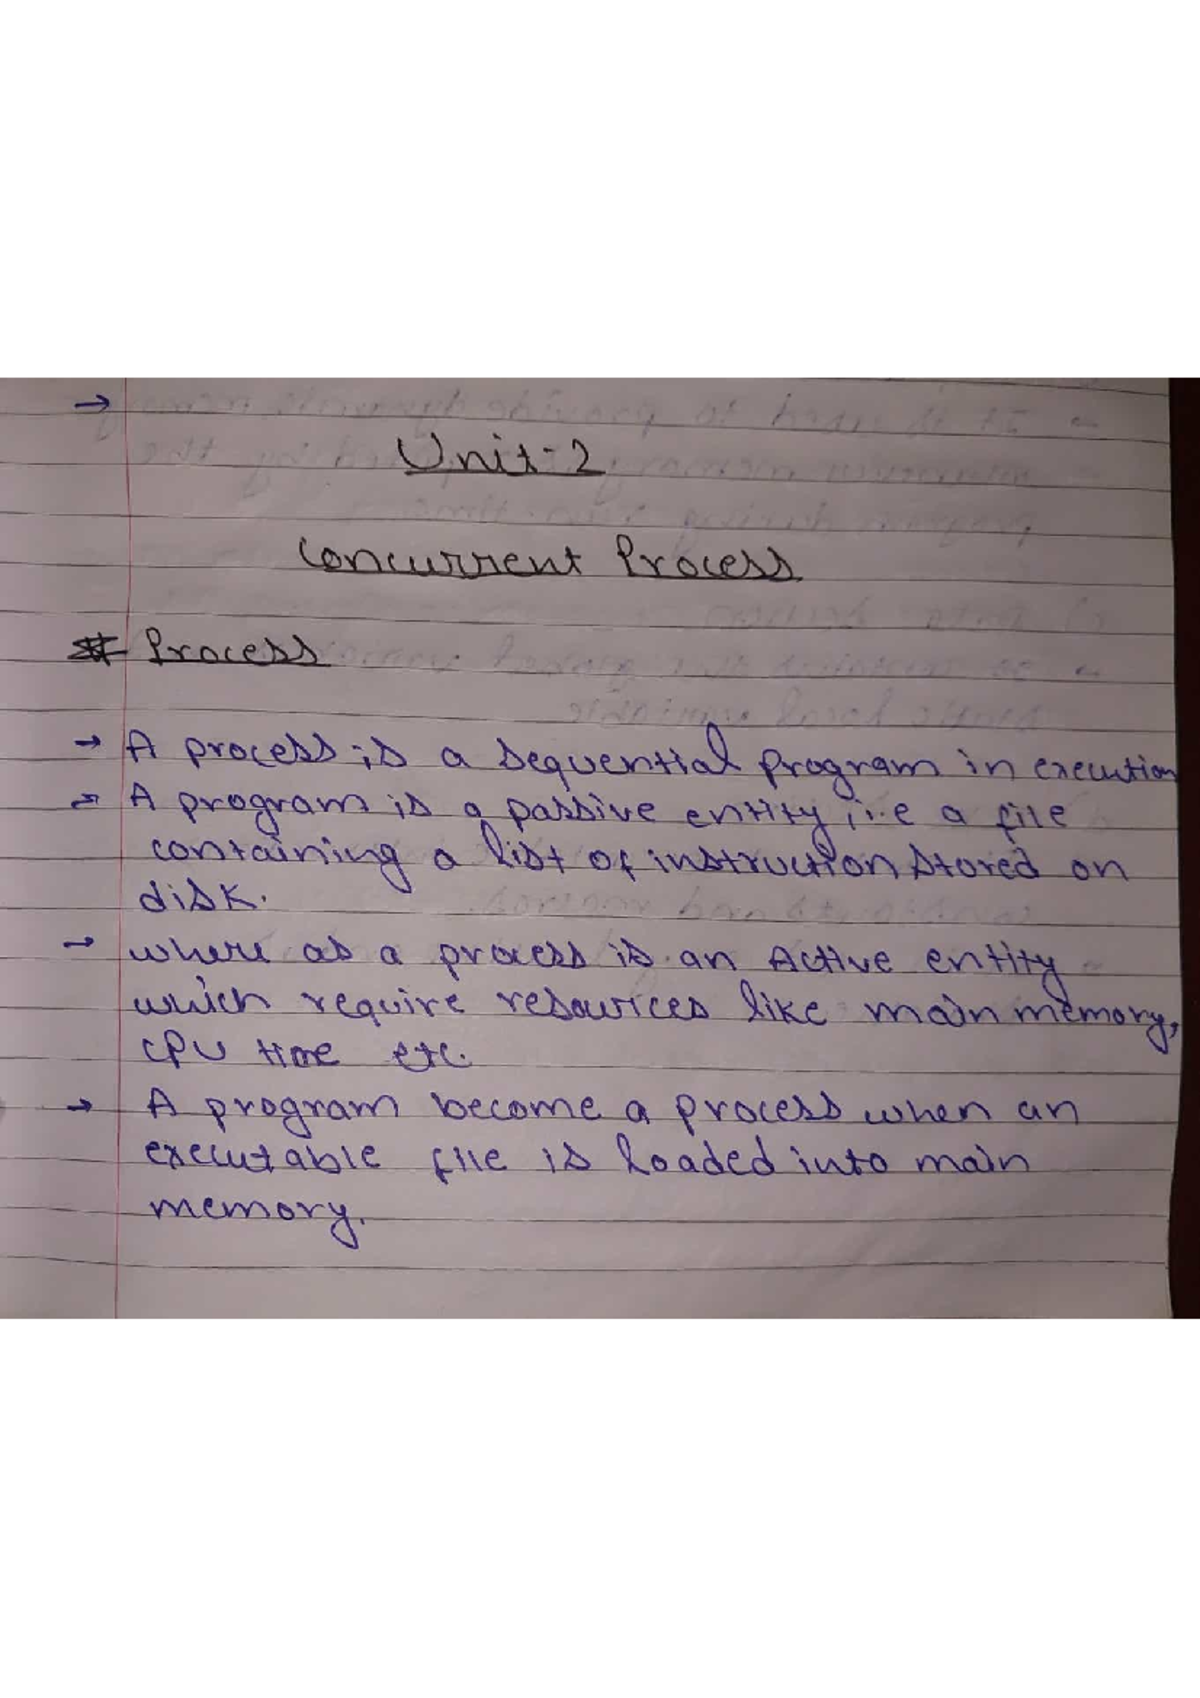 →
Unit-2
Concurrent Process
# Process
→ A process is a sequential program in execution
→ A program is a passive entity, i.e a file
containing a list of instruction stored on
disk.
→ where as a process is an Active entity
which require resources like main memory,
CPU time etc.
→ A program become a process when an
executable file is loaded into main
memory.